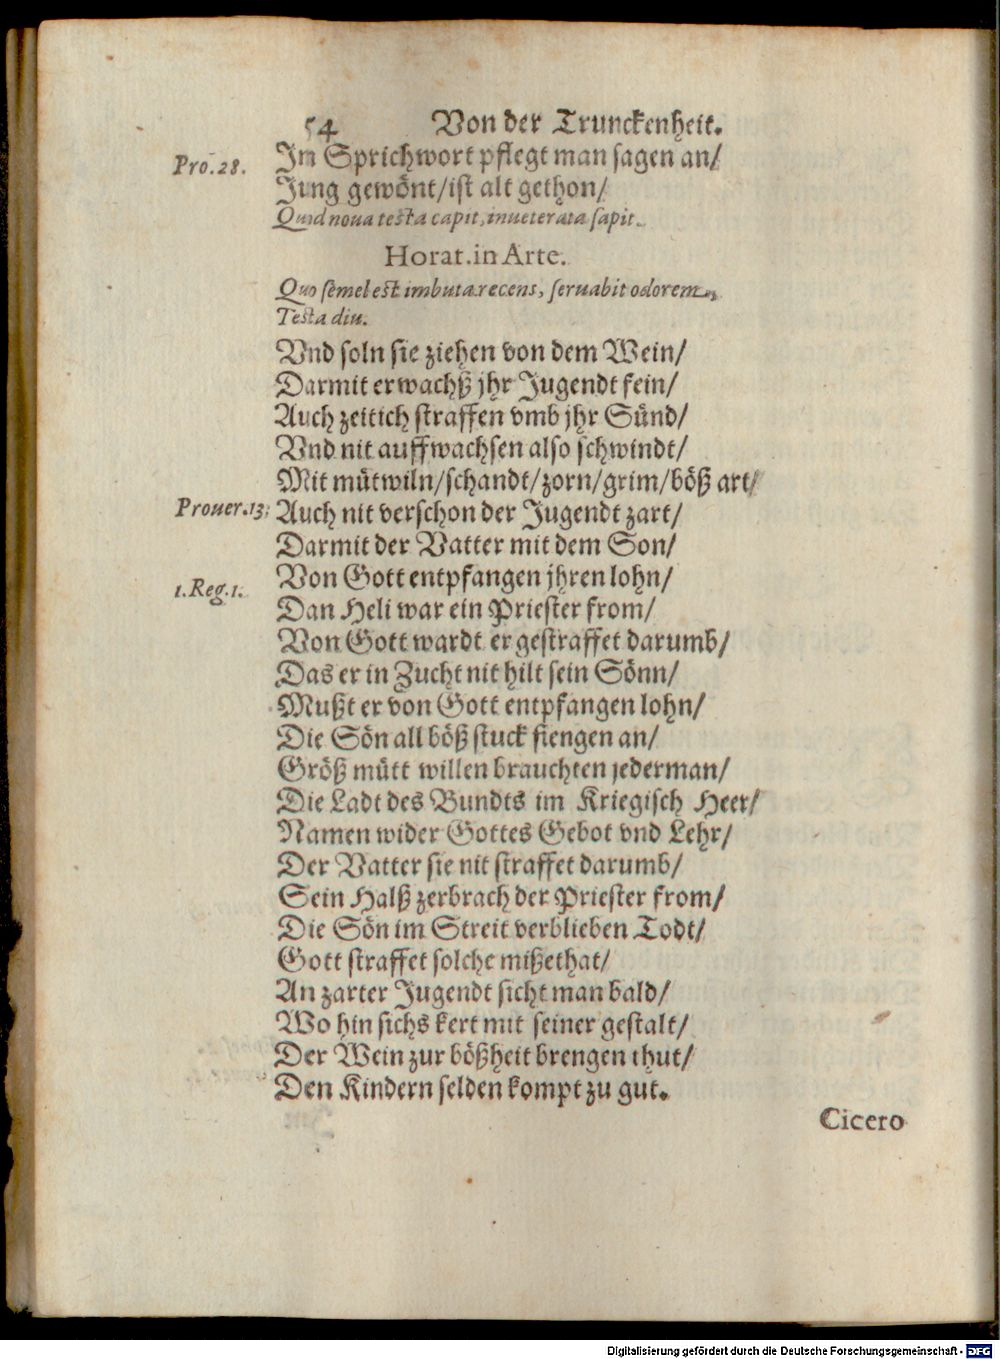 54 Von der Trunckenheit.
Pro. 28. Im Sprichwort pflegt man sagen an/
Jung gewönt/ist alt gethon/
Quid noua testa capit, inueterata sapit.
Horat. in Arte.
Quo semel est imbuta recens, seruabit odorem
Testa diu.
Vnd soln sie ziehen von dem Wein/
Darmit erwachß jhr Jugendt fein/
Auch zeitich straffen vmb jhr Sünd/
Vnd nit auffwachsen also schwindt/
Mit mütwiln/schandt/zorn/grim/böß art/
Prouer. 13; Auch nit verschon der Jugendt zart/
Darmit der Vatter mit dem Son/
Von Gott entpfangen jhren lohn/
1. Reg. 1. Dan Heli war ein Priester from/
Von Gott wardt er gestraffet darumb/
Das er in Zucht nit hilt sein Sönn/
Mußt er von Gott entpfangen lohn/
Die Sön all böß stuck fiengen an/
Größ mütt willen brauchten jederman/
Die Ladt des Bundts im Kriegisch Heer/
Namen wider Gottes Gebot vnd Lehr/
Der Vatter sie nit straffet darumb/
Sein Halß zerbrach der Priester from/
Die Sön im Streit verblieben Todt/
Gott straffet solche mißethat/
An zarter Jugendt sicht man bald/
Wo hin sichs kert mit seiner gestalt/
Der Wein zur bößheit brengen thut/
Den Kindern selden kompt zu gut.
Cicero
Digitalisierung gefördert durch die Deutsche Forschungsgemeinschaft - DFG